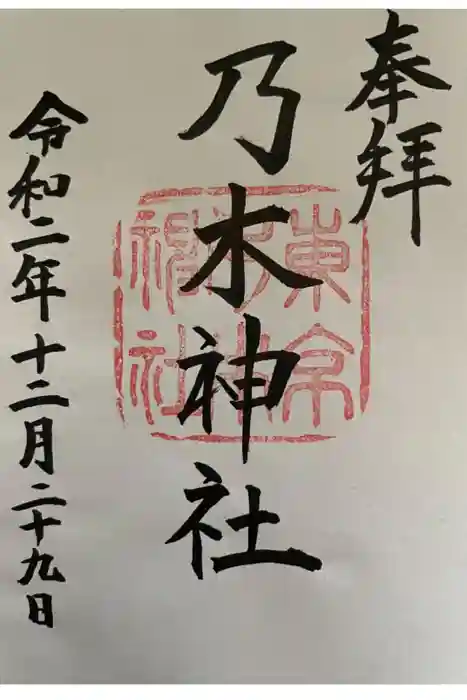 奉拝
乃木神社
令和二年十二月二十九日
東京
乃木神社